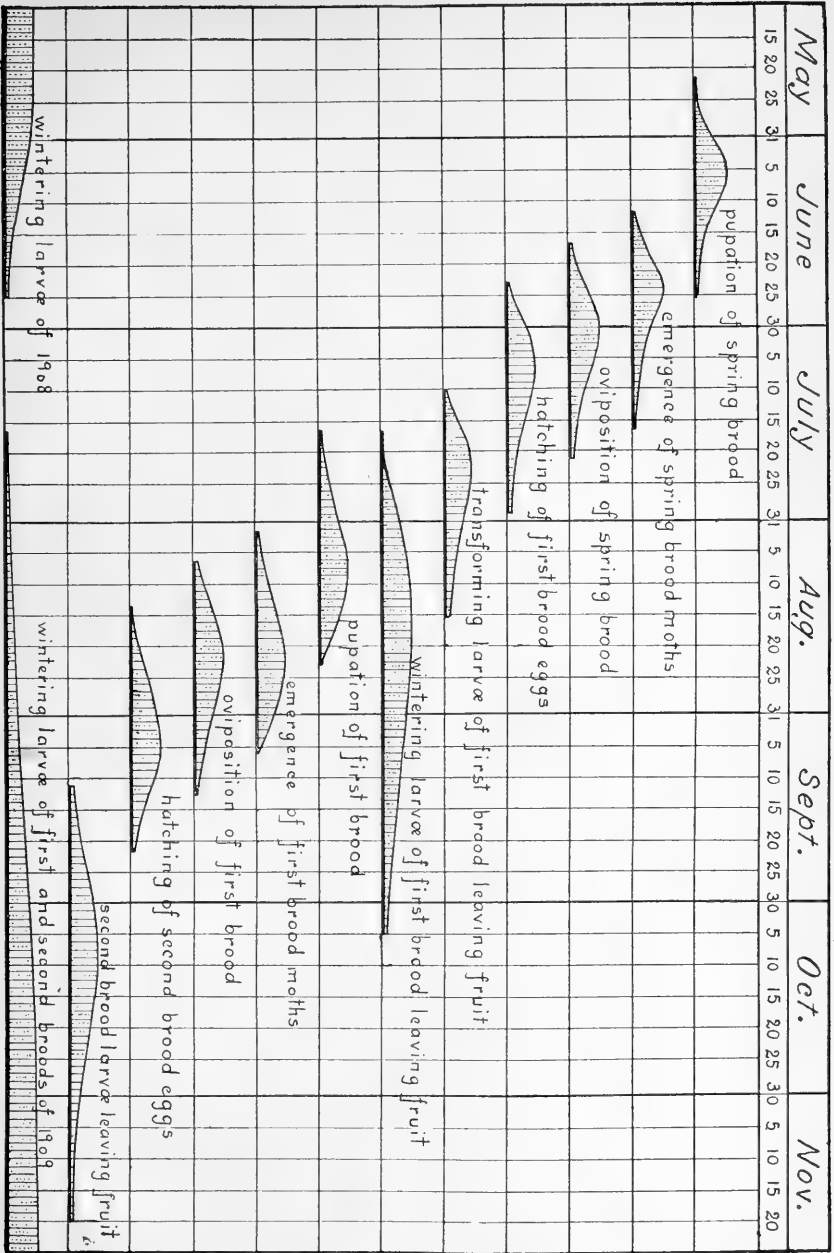 May June July Aug. Sept. Oct. Nov.
15 20 25 31 5 10 15 20 25 30 5 10 15 20 25 31 5 10 15 20 25 31 5 10 15 20 25 30 5 10 15 20 25 30 5 10 15 20
pupation of spring brood
emergence of spring brood moths
oviposition of spring brood
hatching of first brood eggs
transforming larvæ of first brood leaving fruit
wintering larvæ of first brood leaving fruit
pupation of first brood
emergence of first brood moths
oviposition of first brood
hatching of second brood eggs
second brood larvæ leaving fruit
wintering larvæ of 1908
wintering larvæ of first and second broods of 1909